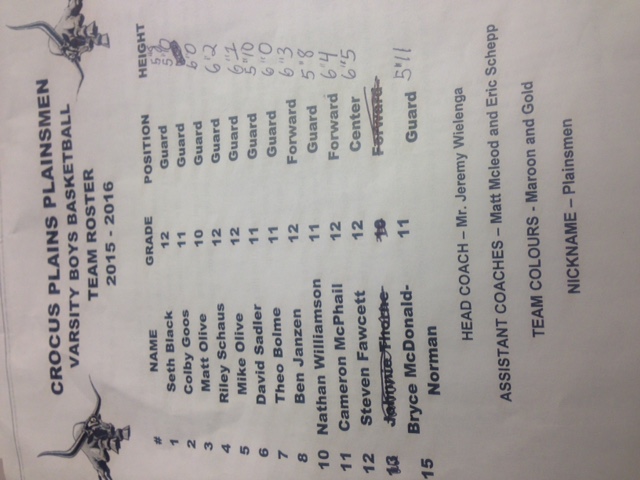 CROCUS PLAINS PLAINSMEN
VARSITY BOYS BASKETBALL
TEAM ROSTER
2015 - 2016
# NAME GRADE POSITION HEIGHT
1 Seth Black 12 Guard
2 Colby Goos 11 Guard
3 Matt Olive 10 Guard 6"0
4 Riley Schaus 12 Guard 6"2
5 Mike Olive 12 Guard 6"1
6 David Sadler 11 Guard 5"10
7 Theo Bolme 11 Guard 6"0
8 Ben Janzen 12 Forward 6"3
10 Nathan Williamson 11 Guard 5"8
11 Cameron McPhail 12 Forward 6"4
12 Steven Fawcett 12 Center 6"5
13 Johnnie Thorne 10 Forward
15 Bryce McDonald- 11 Guard 5"11
Norman
HEAD COACH – Mr. Jeremy Wielenga
ASSISTANT COACHES – Matt Mcleod and Eric Schepp
TEAM COLOURS - Maroon and Gold
NICKNAME – Plainsmen